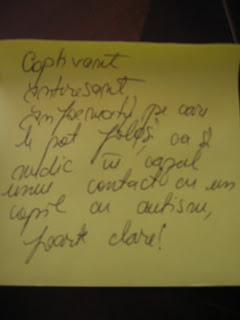 Captivant
interesant
informații pe care
le pot folosi ca și
medic în cazul
unui contact cu un
copil cu autism,
foarte clare!